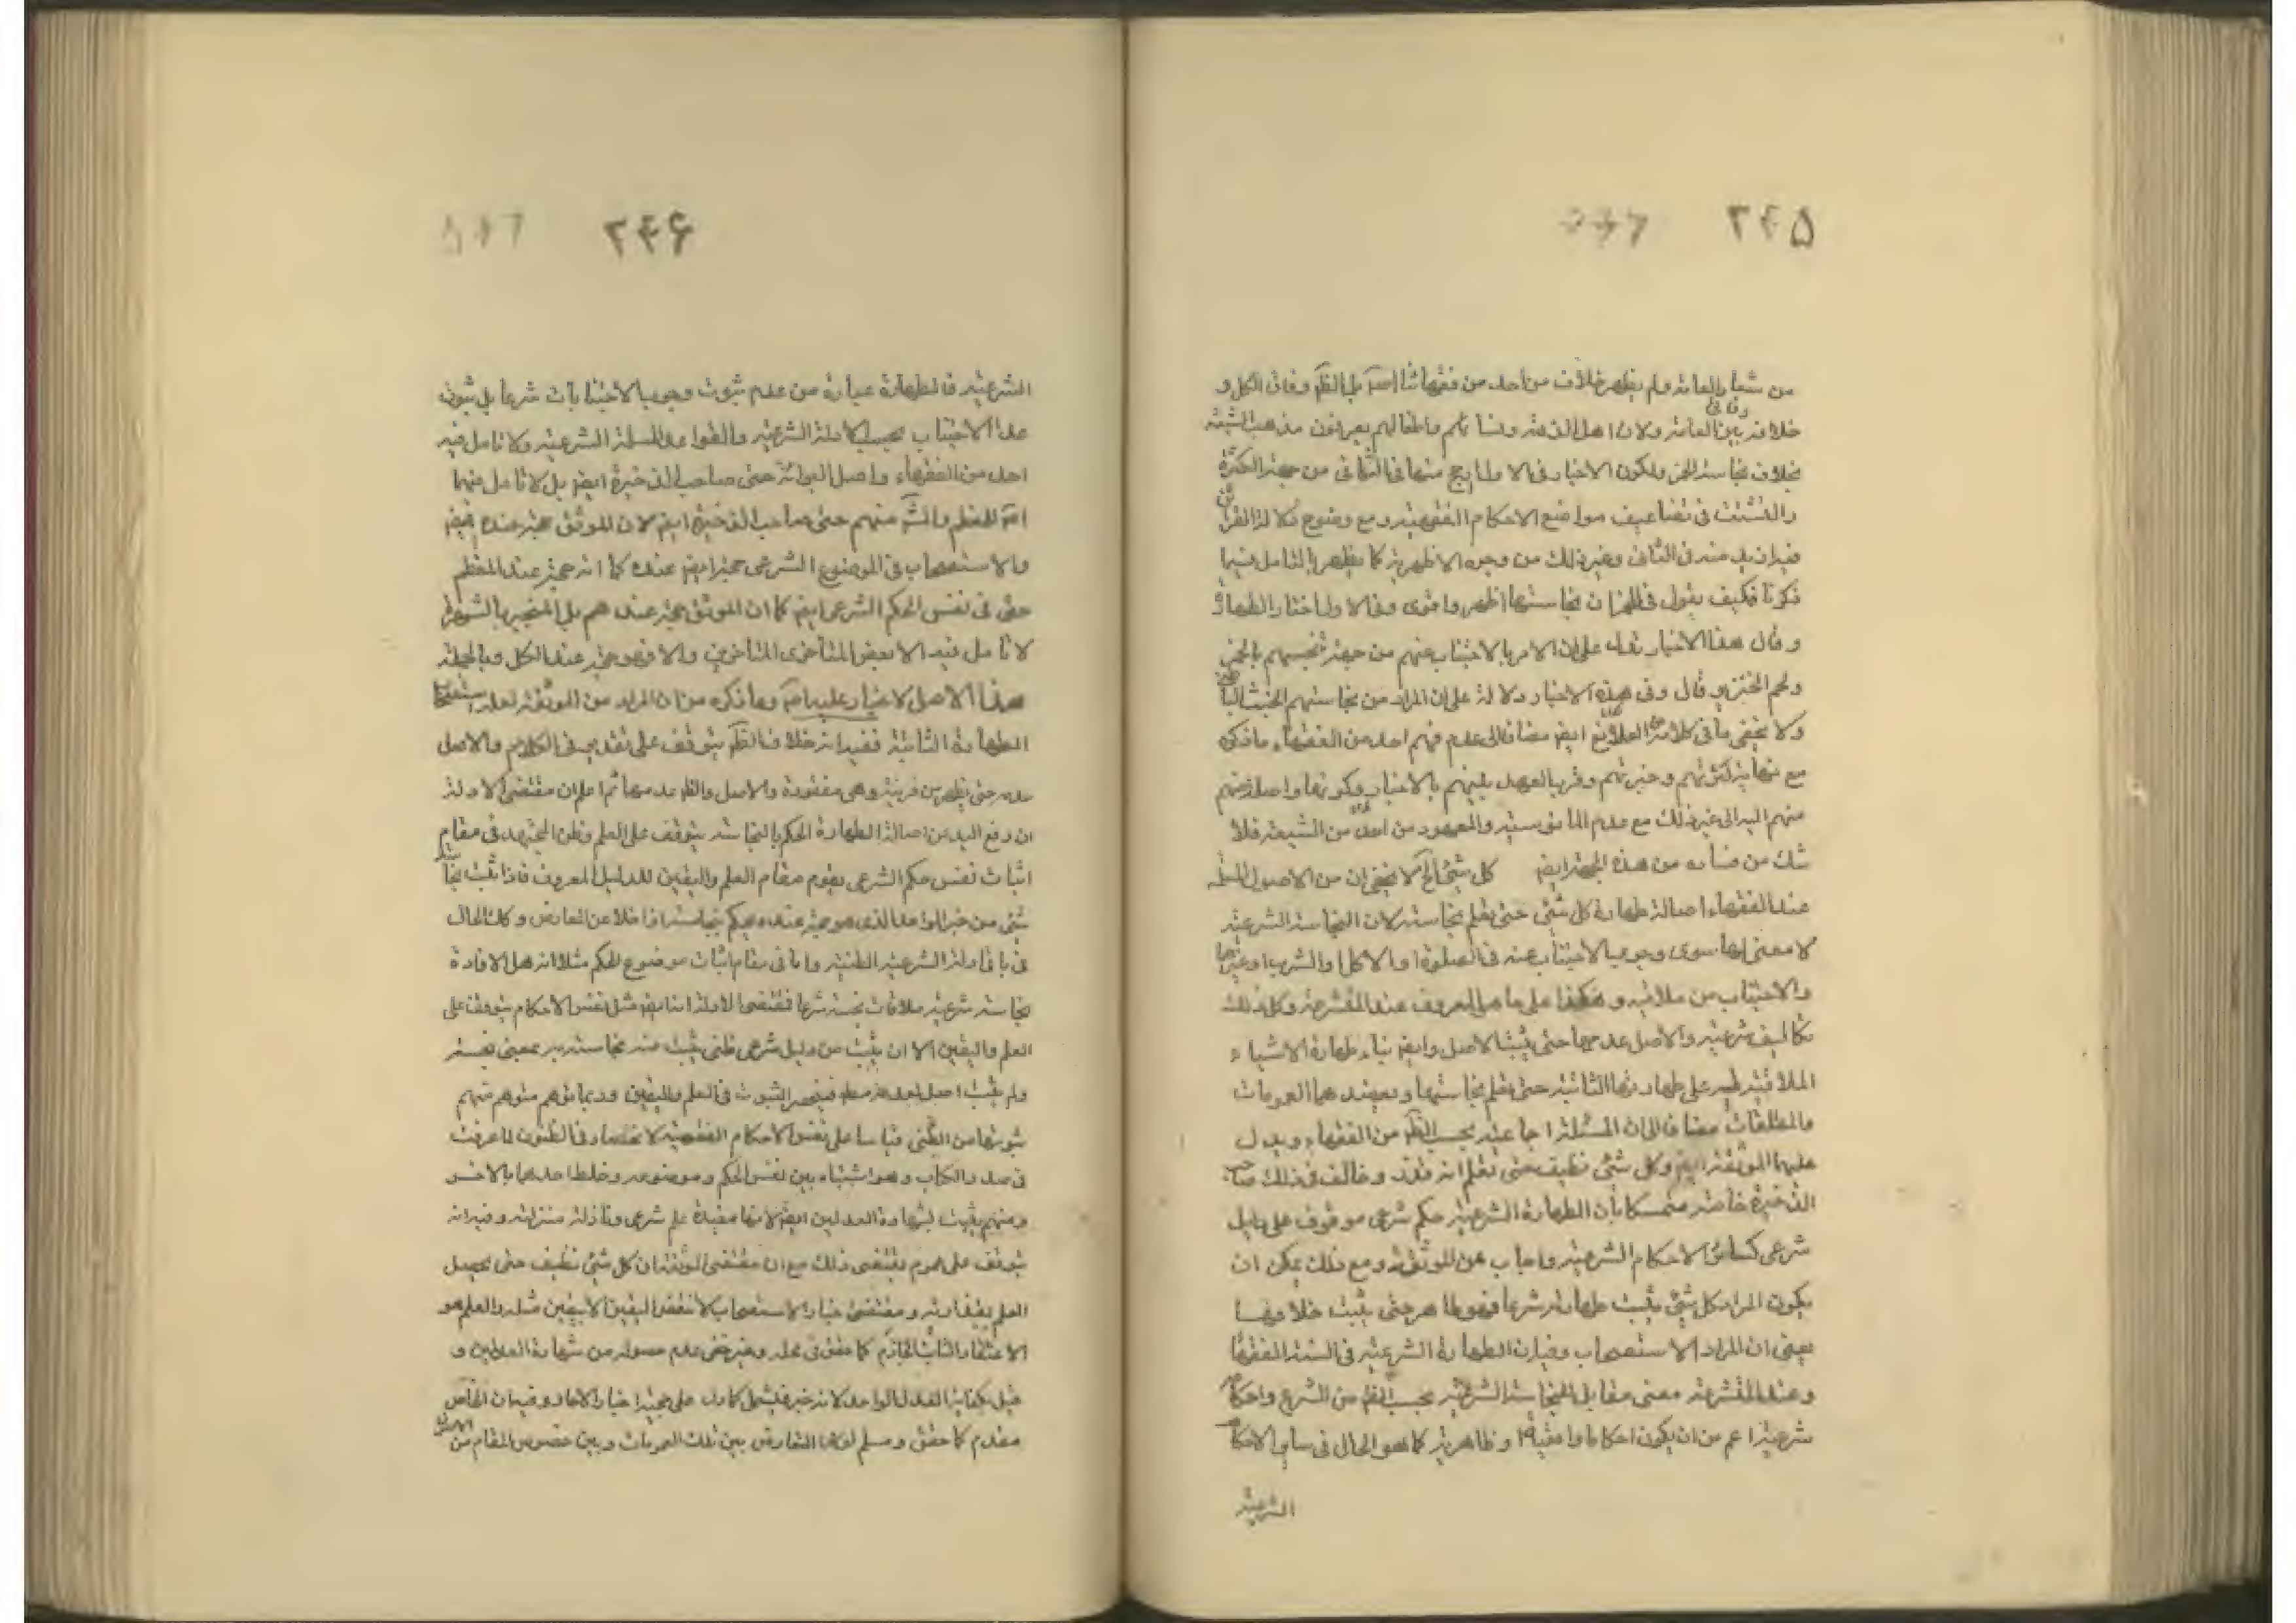 ۲۴۵
من شعار العامة ولم يظهر خلاف من أحد من فقهائنا بل الظ وفاق الكل و
خلافه بين العامة ولان اهل الذمة ونسائهم واطفالهم يعرفون مذهب الشيعة
بخلاف نجاسة الخمر ولكون الاخبار في الاول ارجح منها في الثاني من جهة الكثرة
والتشتت في تضاعيف مواضع الاحكام الفقهية ومع وضوح دلالة القران
فيه ازيد منه في الثاني وغير ذلك من وجوه الاظهرية كما يظهر بالتامل فيما
ذكرنا فكيف يقول في الخمر ان نجاستها اظهر واقوى وفي الاول اختار الطهارة
وقال هذا الاخبار تدل على ان الامر بالاجتناب عنهم من جهة تنجسهم بالخمر
ولحم الخنزير وقال وفي هذه الاخبار دلالة على ان المراد من نجاستهم الخبث الباطني
ولا يخفى ما في كلامه ايض مضافا الى عدم فهم احد من الفقهاء ما ذكره
مع نهاية كثرتهم وخبرتهم وقرب العهد بينهم بالاخبار وكونها واصلة منهم
منهم اليه الى غير ذلك مع عدم المانوسية والمعهود من احد من الشيعة فلا
شك من فساده من هذه الجهة ايض كل شئ الخ لا يخفى ان من الاصول المسلمة
عند الفقهاء اصالة طهارة كل شئ حتى يعلم نجاسته لان النجاسة الشرعية
لا معنى لها سوى وجوب الاجتناب عنه في الصلوة او الاكل او الشرب او غيرها
والاجتناب من ملاقيه وهكذا على ما هو المعروف عند المتشرعة وكل ذلك
تكاليف شرعية والاصل عدمها حتى يثبت الاصل وايض بناء طهارة الاشياء
الملاقية له على طهارتها الثانية حتى يعلم نجاستها ويعضدهما العمومات
والمطلقات مضافا الى ان المسئلة اجماعية بحسب الظ من الفقهاء ويدل
عليها الموثقة ايض وكل شئ نظيف حتى تعلم انه قذر وخالف في ذلك صاحب
الذخيرة خاصة متمسكا بان الطهارة الشرعية حكم شرعي موقوف على دليل
شرعي كسائر الاحكام الشرعية واجاب عن الموثقة ومع ذلك يمكن ان
يكون المراد كل شئ يثبت طهارته شرعا فهو طاهر حتى يثبت خلافها
يعني ان المراد الاستصحاب وفيه ان الطهارة الشرعية في السنة الفقهاء
وعند المتشرعة معنى مقابل للنجاسة الشرعية بحسب الظ من الشرع واحكام
شرعية اعم من ان يكون احكاما واقعية او ظاهرية كما هو الحال في ساير الاحكام
الشرعية
۲۴۶
الشرعية فالطهارة عبارة من عدم ثبوت وجوب الاجتنابات شرعا بل ثبوت
عدم الاجتناب بحسب الادلة الشرعية واتفقوا على المسئلة الشرعية ولا تامل فيه
احد من الفقهاء واصل البرائة حتى صاحب الذخيرة ايض بل لا تامل منهما
المعظم والش منهم حتى صاحب الذخيرة ايض لان الموثق حجة عنده ايض
والاستصحاب في الموضوع الشرعي حجة ايض عنده كما انه حجة عند المعظم
حتى في نفس الحكم الشرعي ايض كما ان الموثق حجة عندهم بل المنجبر بالشهرة
لا تامل فيه الا بعض المتاخرى المتاخرين والا فهو حجة عند الكل وبالجملة
هذا الاصل لا غبار عليه وما ذكره من ان المراد من الموثقة لعله استصحاب
الطهارة الثانية ففيه انه خلاف الظ يتوقف على تقدير في الكلام والاصل
عدمه حتى يظهر من قرينة وهي مفقودة والاصل والظ عدمها ثم اعلم ان مقتضى الادلة
ان رفع اليد من اصالة الطهارة الحكم بالنجاسة يتوقف على العلم وظن المجتهد في مقام
اثبات نفس حكم الشرعي يقوم مقام العلم واليقين للدليل المعروف فاذا ثبت نجاسة
شئ من خبر الواحد الذي هو حجة عنده يحكم بنجاسته اذا خلا عن المعارض وكك الحال
في باقي ادلة الشرعية الظنية واما في مقام اثبات موضوع الحكم مثلا انه هل لاقاه
نجاسة شرعية ملاقات نجسة شرعا فمقتضى الادلة ايض مثل نفس الاحكام يتوقف على
العلم واليقين الا ان يثبت من دليل شرعي ظني يثبت منه نجاسته بمعنى نجسة
ولم يثبت اصل فينحصر الثبوت في العلم واليقين وربما توهم متوهم منهم
ثبوتها من الظني قياسا على نفس الاحكام الفقهية لانحصار في الظنون لما عرفت
في صدر الكتاب وهو اشتباه بين نفس الحكم وموضوعه وخلط احدهما بالاخر
ومنهم يثبت بشهادة العدلين ايض لانها مفيدة علم شرعي ونازلة منزلته وفيه انه
يتوقف على عموم يقتضى ذلك مع ان مقتضى الموثقة ان كل شئ نظيف حتى يحصل
العلم بقذارته ومقتضى اخبار الاستصحاب لا تنقض اليقين الا بيقين مثله والعلم هو
الاعتقاد الثابت الجازم كما حقق في محله وغير خفي عدم حصوله من شهادة العدلين و
قيل بكفاية العدل الواحد لانه خبر فيشمل كما دل على حجية اخبار الاحاد وفيه ان الخاص
مقدم كما حقق ومسلم التعارض بين تلك العمومات وبين خصوص المقام من